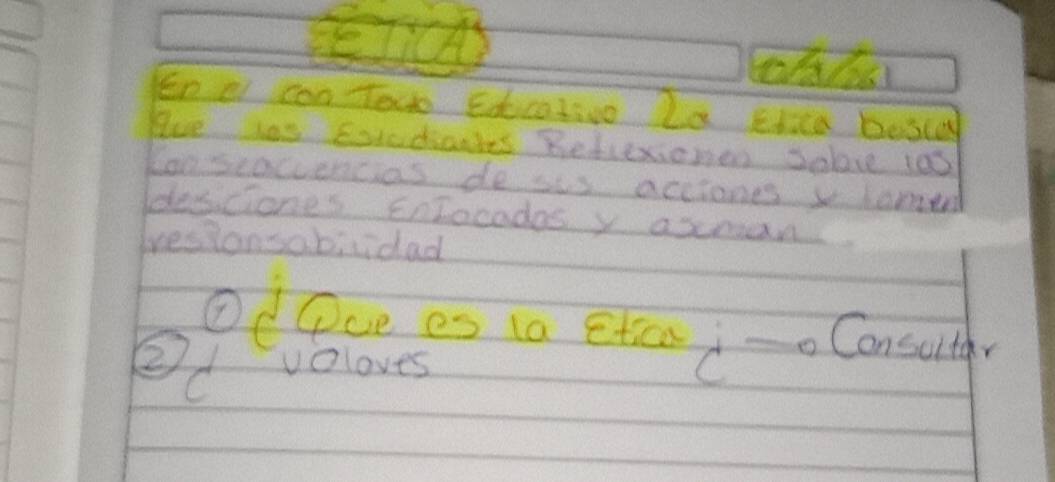 ETICA
En el con Texto Educativo La Etica busca
que los Estudiantes Reflexionen sobre las
Conseacuencias de sus acciones y tomen
desiciones Enfocados y asuman
responsabilidad
① ¿Que es la Etica¿ → Consultar
② ¿ valores